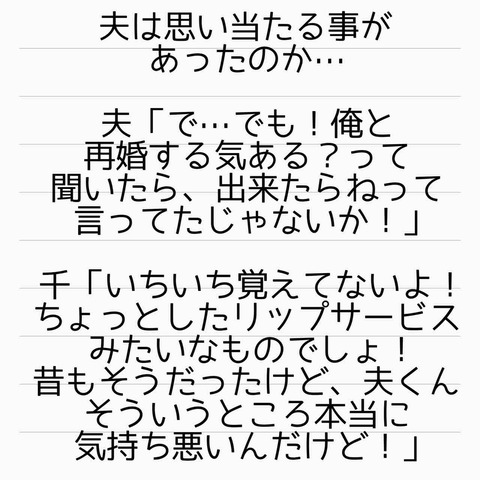 夫は思い当たる事が
あったのか…
夫「で…でも！俺と
再婚する気ある？って
聞いたら、出来たらねって
言ってたじゃないか！」
千「いちいち覚えてないよ！
ちょっとしたリップサービス
みたいなものでしょ！
昔もそうだったけど、夫くん
そういうところ本当に
気持ち悪いんだけど！」